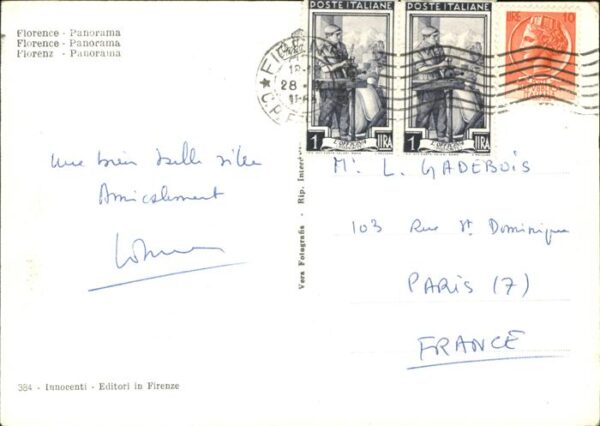 Florence - Panorama
Florence - Panorama
Florenz - Panorama
une bien belle ville
Amicalement
384 - Innocenti - Editori in Firenze
Vera Fotografia - Rip.
POSTE ITALIANE
1 LIRA
POSTE ITALIANE
1 LIRA
LIRE 10
28
Mr L. GADEBOIS
103 Rue St Dominique
PARIS (7)
FRANCE